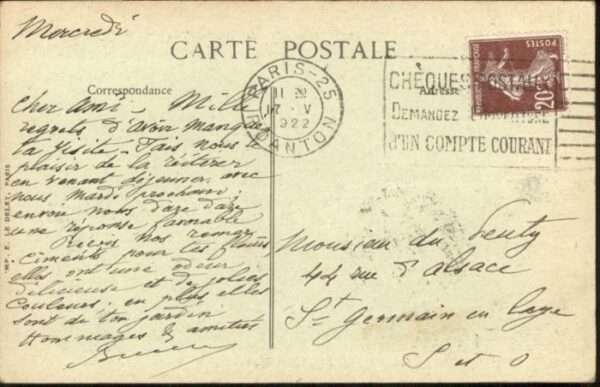 Mercredi
CARTE POSTALE
Correspondance
Adresse
Cher ami. Mille
regrets d'avoir manqué
ta visite. Fais nous le
plaisir de la réiterer
en venant déjeuner avec
nous Mardi prochain.
envoie nous
une réponse favorable
Reçois nos remer-
ciements pour tes fleurs,
elles ont une odeur
délicieuse et de jolies
couleurs. en plus elles
sont de ton jardin
Hommages & amitiés
PARIS-25
11 30
17 - V
1922
R. DANTON
CHÈQUES POSTAUX
DEMANDEZ L'OUVERTURE
D'UN COMPTE COURANT
POSTES
20c
Monsieur du
44 rue d'alsace
St Germain en Laye
S et O
IMP. E. LE DELEY, PARIS